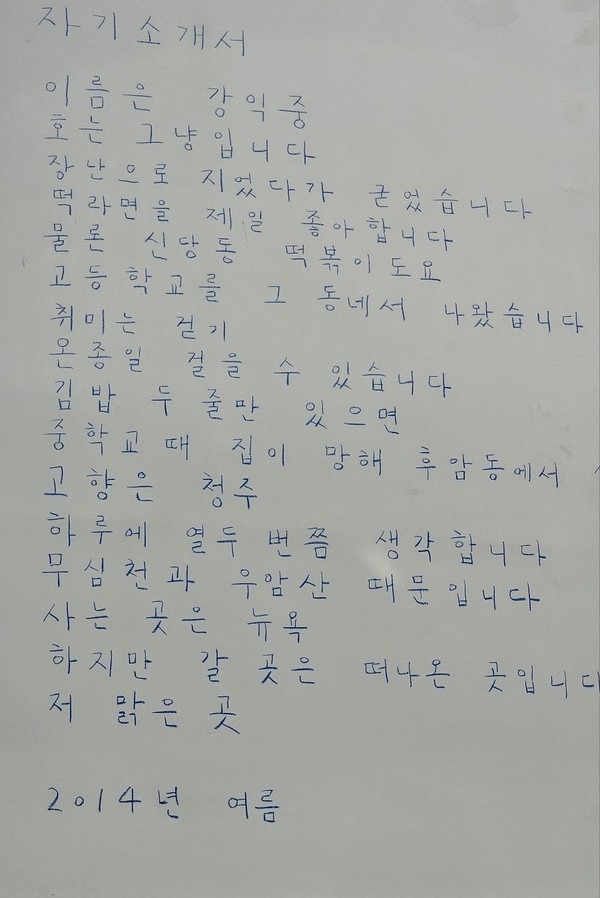 자기소개서
이름은 강익중
호는 그냥입니다
장난으로 지었다가 굳었습니다
떡라면을 제일 좋아합니다
물론 신당동 떡볶이도요
고등학교를 그 동네서 나왔습니다
취미는 걷기
온종일 걸을 수 있습니다
김밥 두 줄만 있으면
중학교때 집이 망해 후암동에서
고향은 청주
하루에 열두 번쯤 생각합니다
무심천과 우암산 때문입니다
사는 곳은 뉴욕
하지만 갈 곳은 떠나온 곳입니다
저 맑은 곳
2014년 여름